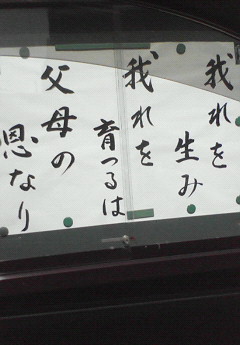 我れを
生み
我れを
育つるは
父母の
恩なり